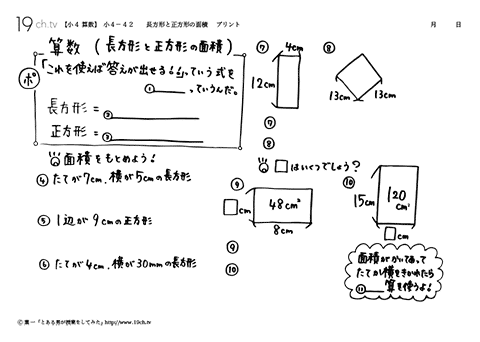 19ch.tv 【小４算数】 小４－４２ 長方形と正方形の面積 プリント 月 日
算数 (長方形と正方形の面積)
ポ
「これを使えば答えが出せる！」っていう式を
① っていうんだ。
長方形 = ②
正方形 = ③
面積をもとめよう！
④ たてが7cm、横が5cmの長方形
⑤ 1辺が9cmの正方形
⑥ たてが4cm、横が30mmの長方形
⑦ 4cm
12cm
⑧
13cm 13cm
⑦
⑧
□はいくつでしょう？
⑨
□cm 48cm²
8cm
⑩
15cm 120cm²
□cm
⑨
⑩
面積がかいてあって
たてか横をきかれたら
⑪ 算を使うよ！
©葉一「とある男が授業をしてみた」http://www.19ch.tv